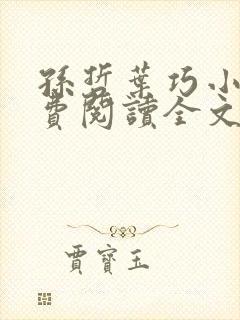 孫哲葉巧小
費閱讀全文
賈寶玉